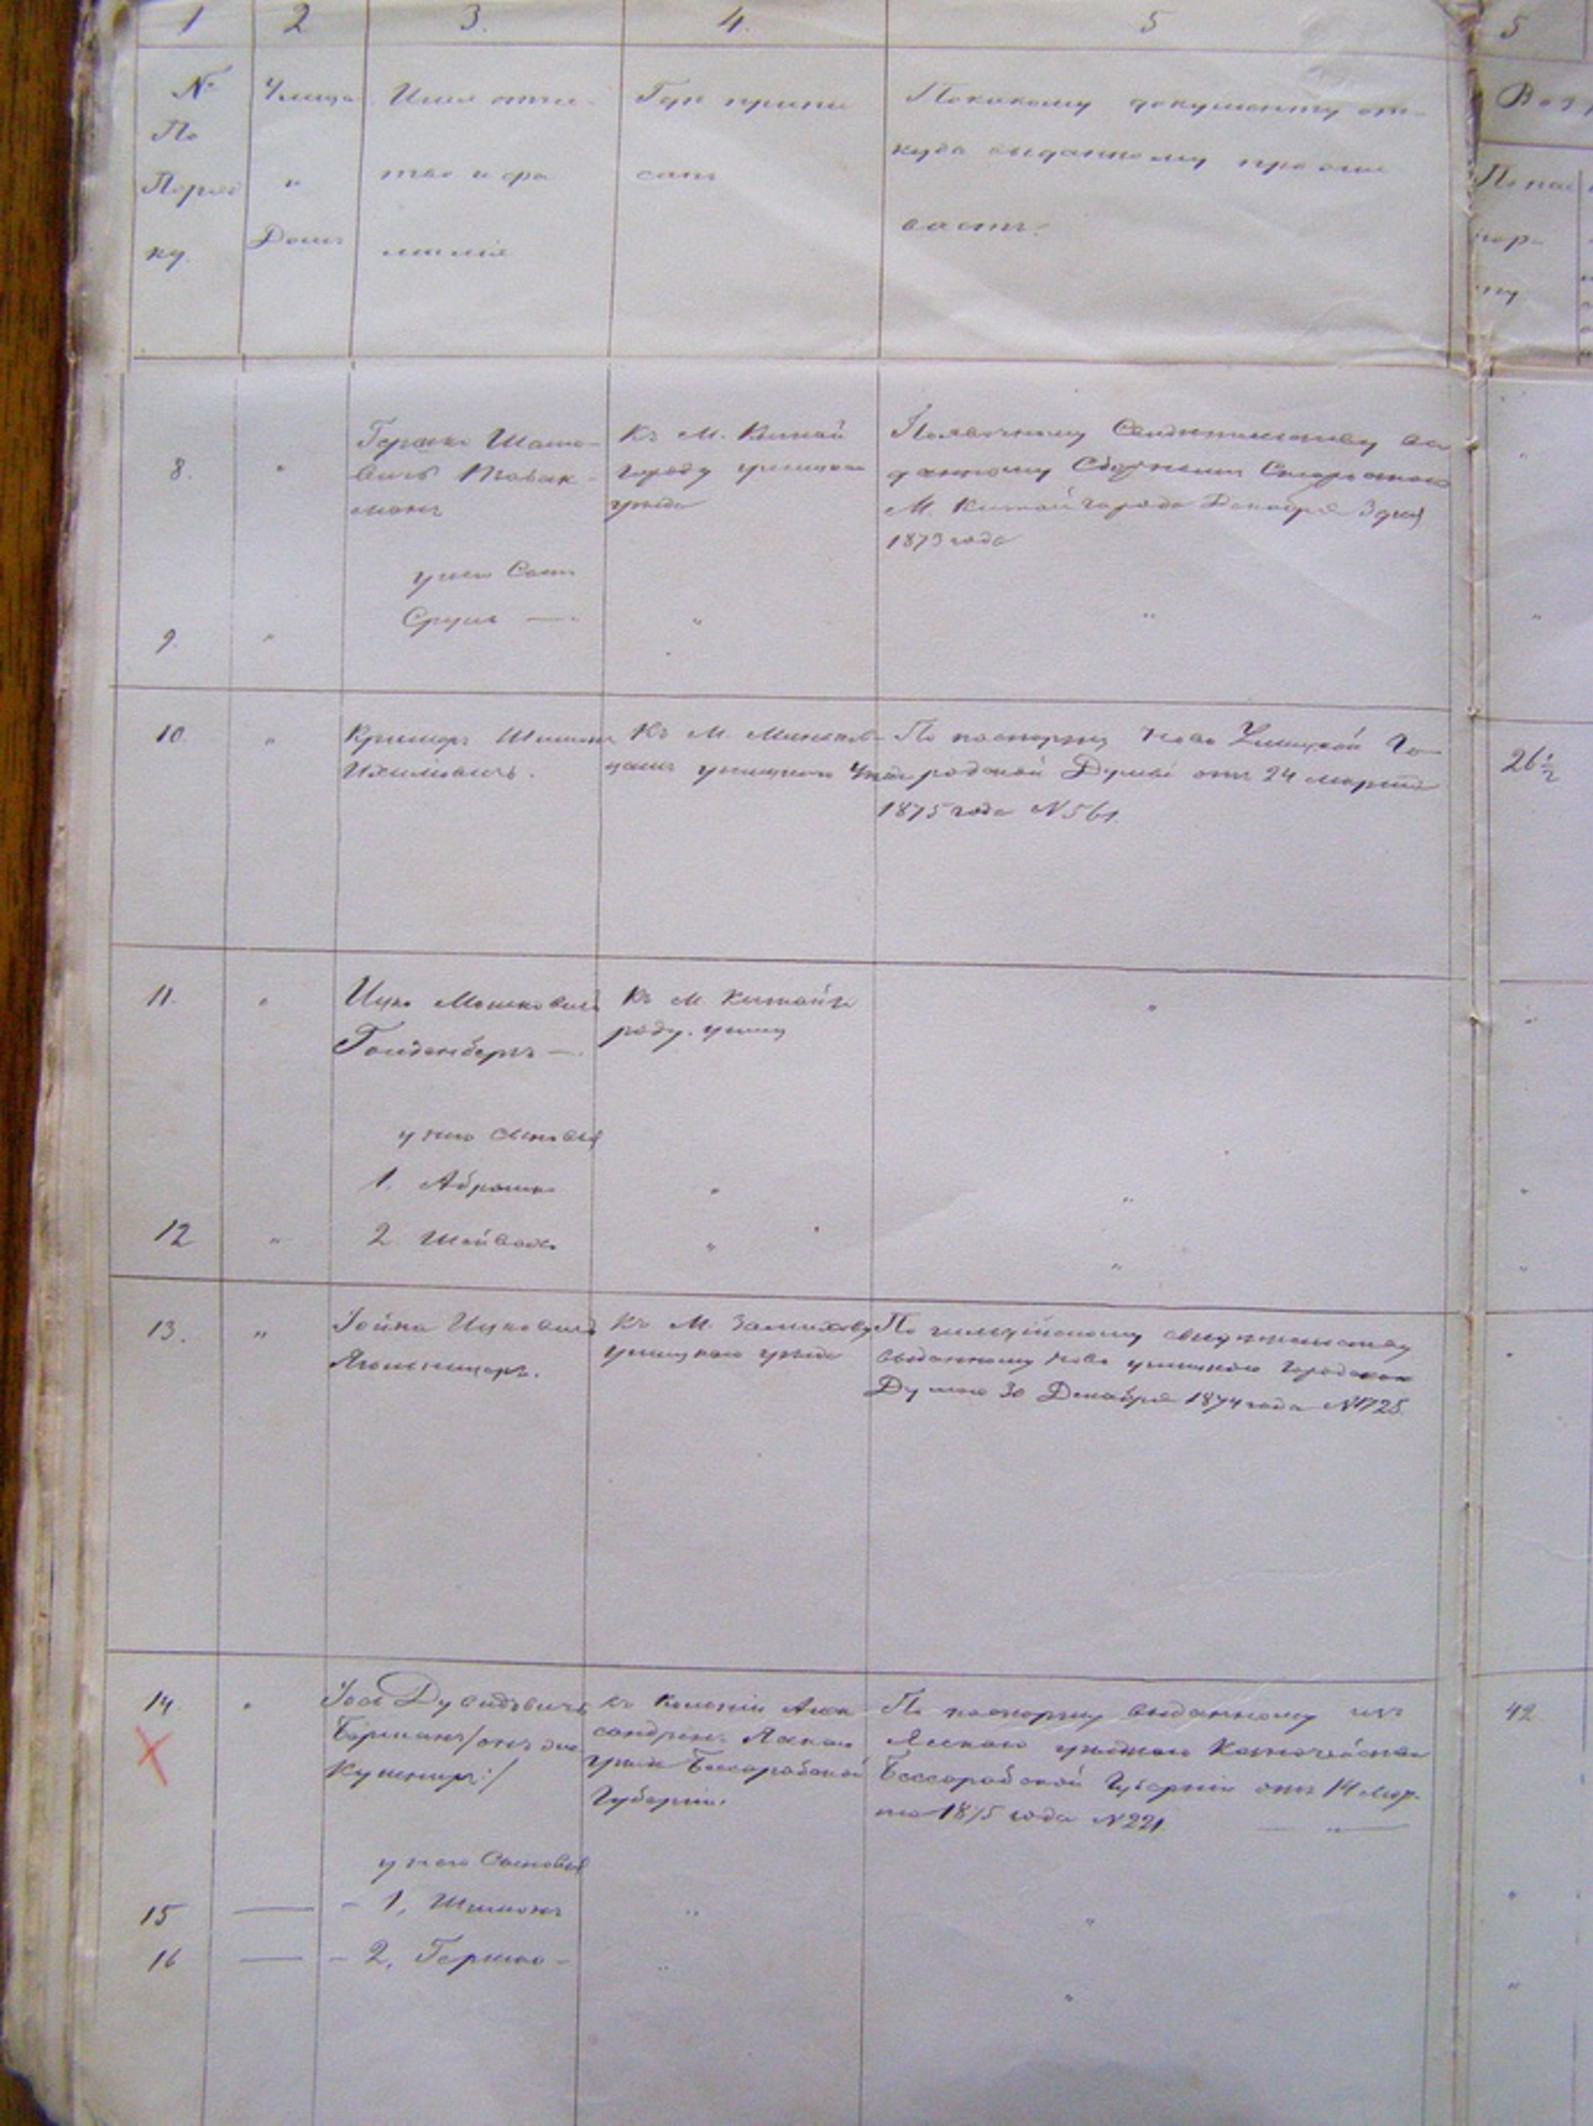 1 2 3. 4. 5 5
№ По Поряд ку.
Улица и Домъ
Имя отче-
тво и фа
милія
Где припи
санъ
По какому документу от-
куда выданному прожи
ваетъ.
Воз
По пас
пор-
ту
8. "
Гершко
вичъ
манъ
Къ М. Китай
городу ушицкаго
уезда
Появочному Свидетельству вы
данному Сборнымъ Старостою
М. Китайгорода Декабря 3 дня
1873 года
у него Сынъ
9. " Сруль — " "
10. "
Кримеръ Шимонъ
Ихиловичъ.
Къ М. Миньков-
цамъ ушицкаго уезда
По паспорту Ново Ушицкой Го-
родской Думы отъ 24 марта
1875 года N 561.
26 1/2
11. "
Ицко Мошковичъ
Гольденбергъ —.
Къ М Китайго
роду. ушиц
"
у него сыновья
1. Абрамъ " "
12 " 2 Шейвахъ " "
13. "
Іойна Ицковичъ
Къ М. Замихову
ушицкаго уезда
По гильдійскому свидетельству
выданному Ново ушицкою Городскою
Думою 30 Декабря 1874 года N 1725.
14 "
Іось Дувидовичъ
Берманъ /онъ же
Кушниръ:/
къ Колоніи Алек
сандрень. Ясскаго
уезда Бессарабской
Губерніи.
По паспорту выданному изъ
Ясскаго уезднаго Казначейства
Бессарабской Губерніи отъ 14 Мар-
та 1875 года N 221. — " —
42
у него Сыновья
15 — - 1, Шимонъ " "
16 — - 2, Гершко - " "